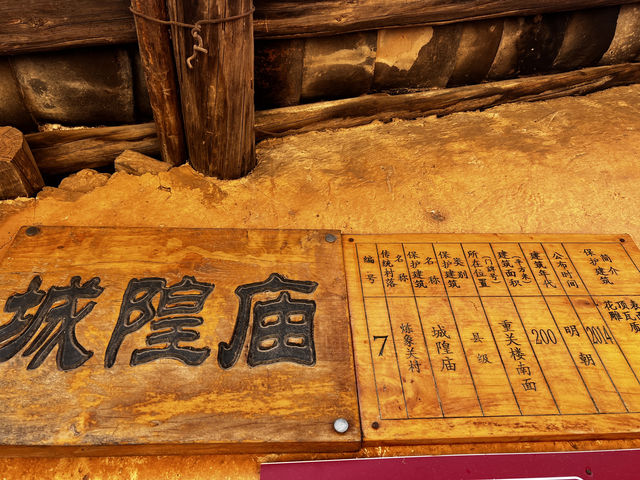 城隍庙
编号
传统村落
名称
保护建筑
名称
保护建筑
类别
所在位置
(门牌号)
建筑面积
(平方米)
建筑年代
公布时间
保护建筑
简介
7
炼象关村
城隍庙
县级
重关楼南面
200
明朝
2014